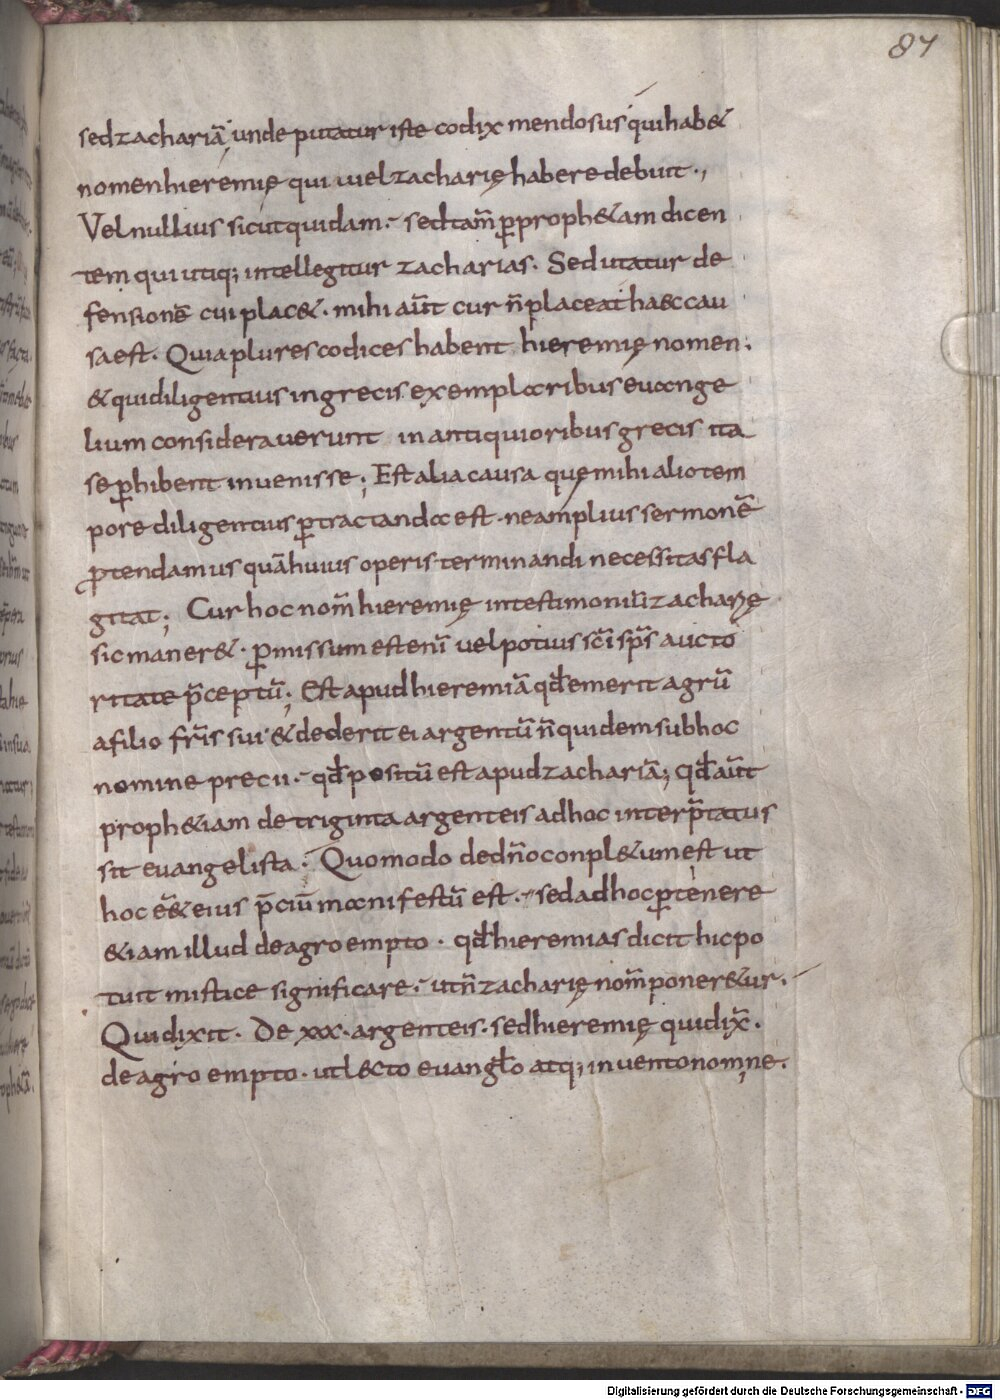 87
sed zachariā; unde putatur iste codix mendosus qui hab&
nomen hieremię qui vvel zacharię habere debuit.,
Vel nullius sicut quidam. sed tam̄ p̱ proph&am dicen
tem qui utiq; intellegitur zacharias. Sed utatur de
fensionē cui plac&. mihi aūt cur n̄ placeat haec cau
sa est. Quia plures codices habent hieremię nomen.
& qui diligentius in grecis exemplaribus evange
lium consideraverunt in antiquioribus grecis ita
se p̱hibent invenisse; Est alia causa quę mihi alio tem
pore diligentius p̱tractanda est. ne amplius sermonē
ꝓtendamus quā huius operis terminandi necessitas fla
gitat; Cur hoc nom̄ hieremię in testimonii zacharię
sic maner&. p̱missum est enī vel potius sc̄i sp̄s aucto
ritate p̄ceptū; Est apud hieremiā qđ emerit agrū
a filio fr̄is sui & dederit ei argentū n̄ quidem sub hoc
nomine precii. qđ positū est apud zachariā; qđ aūt
proph&iam de triginta argenteis ad hoc interp̄tatus
sit evangelista. Quomodo de dn̄o conpl&um est ut
hoc eē& eius p̄ciū manifestū est. sed ad hoc p̱tenere
&iam illud de agro empto. qđ hieremias dicit hic po
tuit mistice significare. ut n̄ zacharię nom̄ poner&ur.
Qui dixit. De xxx. argenteis. sed hieremię qui dix̄.
de agro empto. ut l&cto evanglo atq; invento nomne.
Digitalisierung gefördert durch die Deutsche Forschungsgemeinschaft - DFG